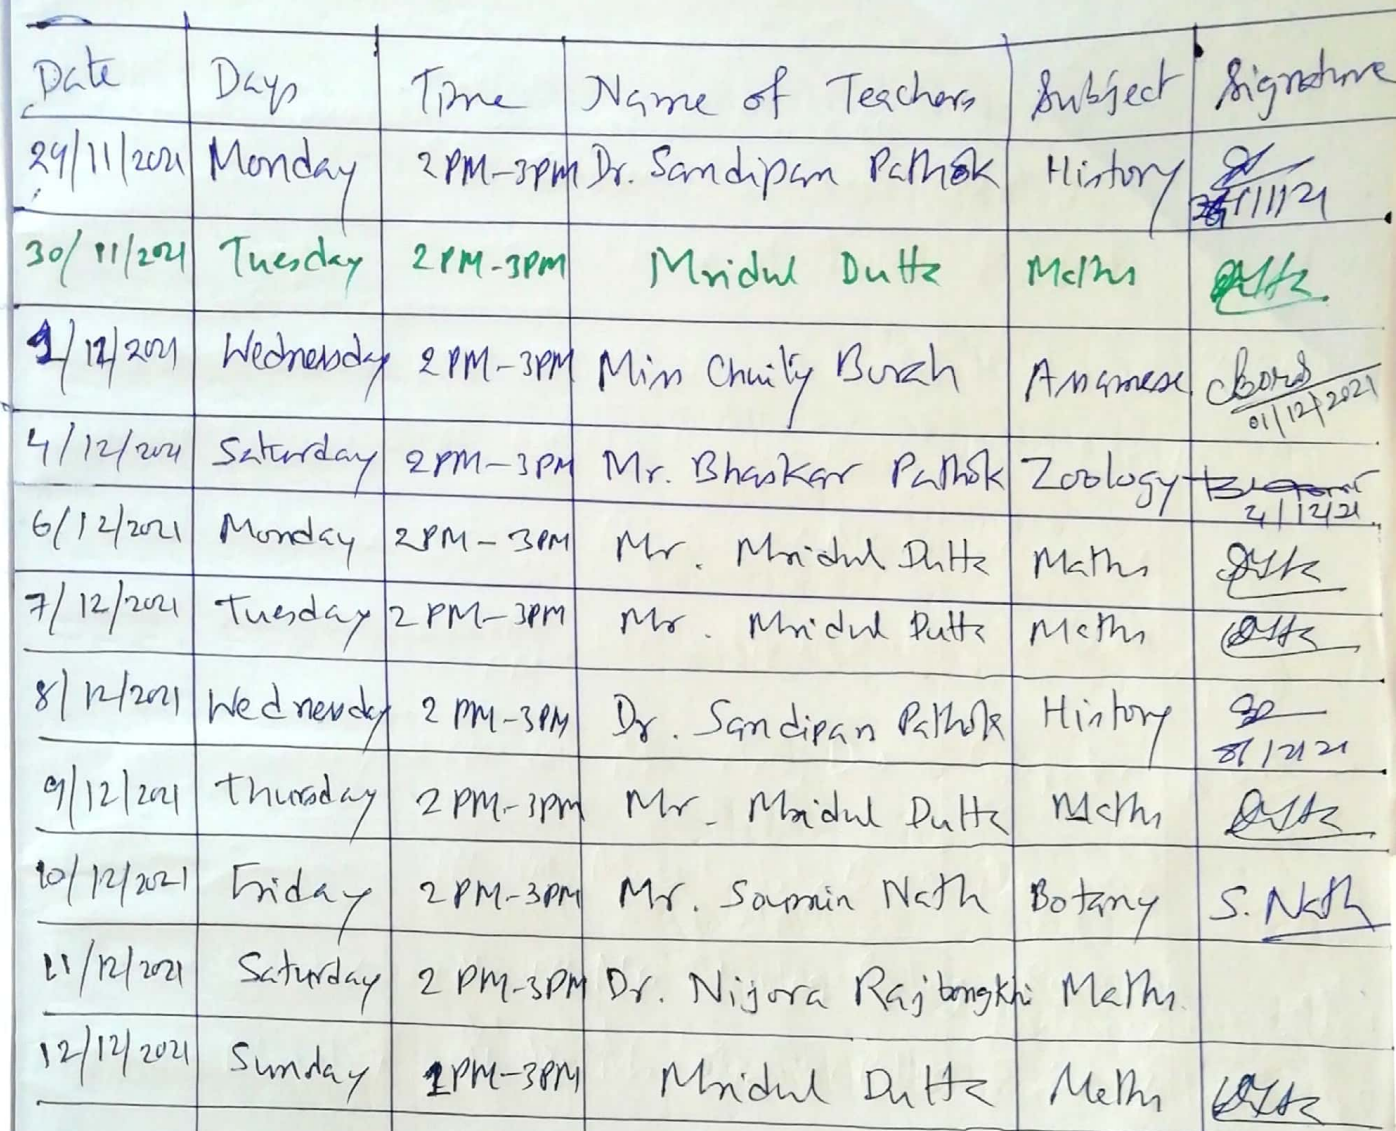 Date Days Time Name of Teachers Subject Signature
29/11/2021 Monday 2PM-3PM Dr. Sandipan Pathok History
30/11/2021 Tuesday 2PM-3PM Mridul Dutta Maths Dutta
1/12/2021 Wednesday 2PM-3PM Miss Chaity Borah Assamese CBora
01/12/2021
4/12/2021 Saturday 2PM-3PM Mr. Bhaskar Pathok Zoology
4/12/21
6/12/2021 Monday 2PM-3PM Mr. Mridul Dutta Maths Dutta
7/12/2021 Tuesday 2PM-3PM Mr. Mridul Dutta Maths Dutta
8/12/2021 Wednesday 2PM-3PM Dr. Sandipan Pathok History
8/12/21
9/12/2021 Thursday 2PM-3PM Mr. Mridul Dutta Maths Dutta
10/12/2021 Friday 2PM-3PM Mr. Soumin Nath Botany S. Nath
11/12/2021 Saturday 2PM-3PM Dr. Nijora Rajbongshi Maths.
12/12/2021 Sunday 2PM-3PM Mridul Dutta Maths Dutta